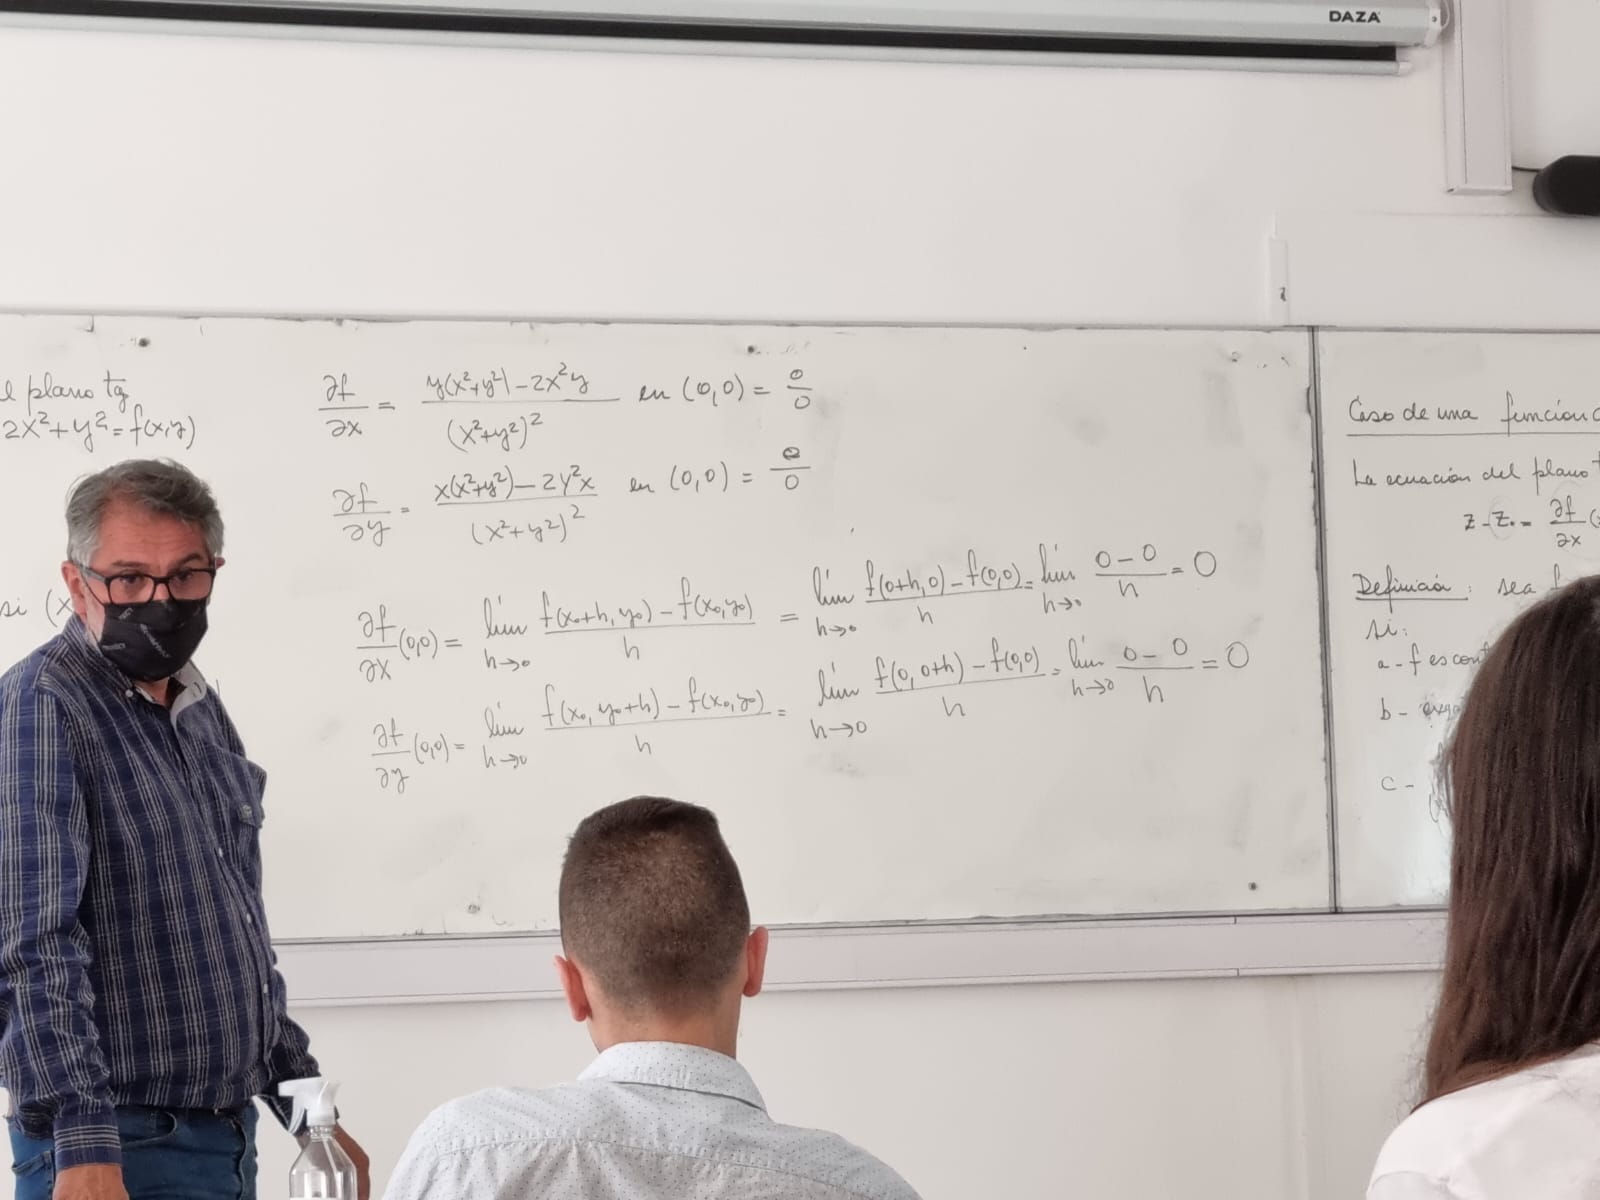 DAZA
el plano tg
2x²+y²=f(x,y)
si (x
∂f/∂x = (y(x²+y²)-2x²y)/(x²+y²)² en (0,0) = 0/0
∂f/∂y = (x(x²+y²)-2y²x)/(x²+y²)² en (0,0) = 0/0
∂f/∂x (0,0) = lím h→0 (f(x₀+h, y₀) - f(x₀,y₀))/h = lím h→0 (f(0+h,0) - f(0,0))/h = lím h→0 (0-0)/h = 0
∂f/∂y (0,0) = lím h→0 (f(x₀, y₀+h) - f(x₀,y₀))/h = lím h→0 (f(0,0+h) - f(0,0))/h = lím h→0 (0-0)/h = 0
Caso de una función
La ecuación del plano t
z-z₀ = ∂f/∂x (
Definición: sea f
si:
a - f es cont
b -
c -